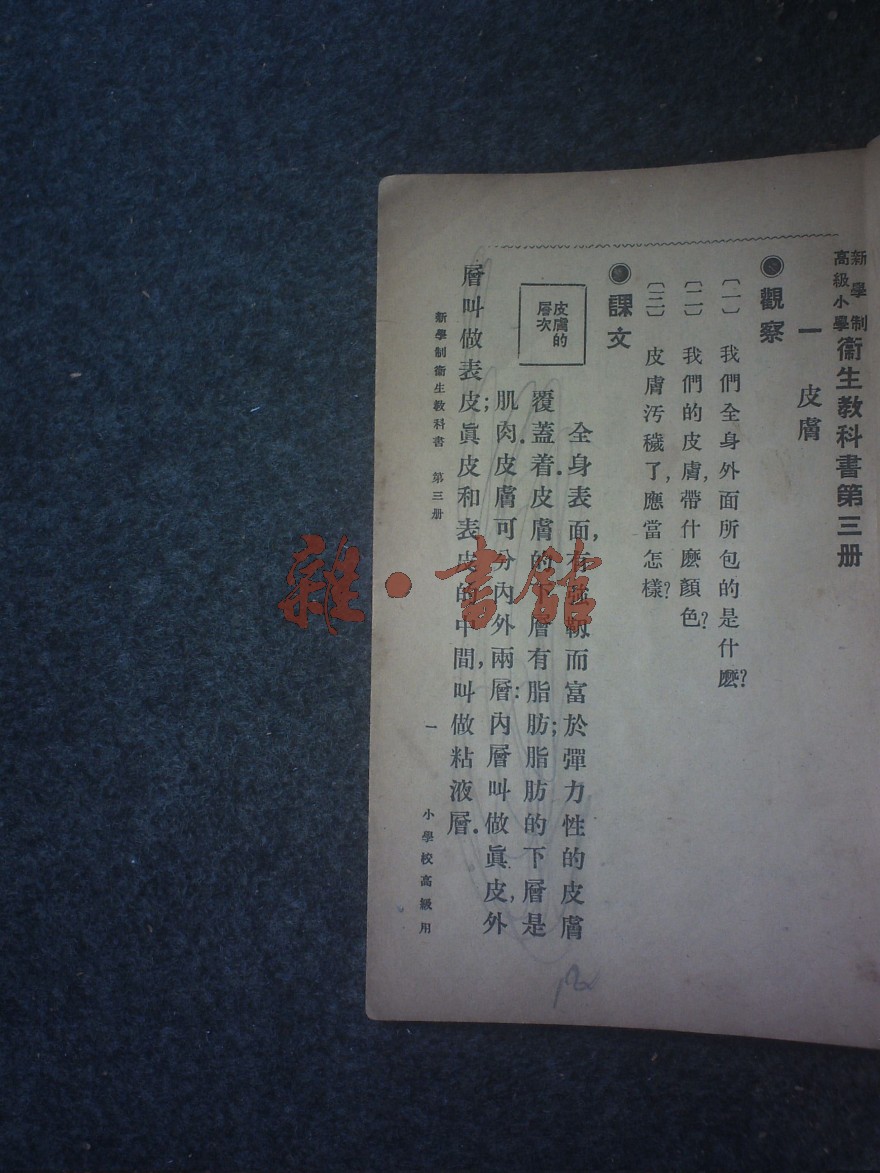 新學制
高級小學
衞生教科書第三册
一 皮膚
◉ 觀察
〔一〕 我們全身外面所包的是什麽?
〔二〕 我們的皮膚,帶什麽顏色?
〔三〕 皮膚汚穢了,應當怎樣?
◉ 課文
皮膚的
層次
全身表面,有而富於彈力性的皮膚
覆蓋着.皮膚的下層有脂肪;脂肪的下層是
肌肉.皮膚可分內外兩層:內層叫做眞皮,外
層叫做表皮;眞皮和表皮的中間,叫做粘液層.
新學制衞生教科書 第三册
一
小學校高級用
雜·書館